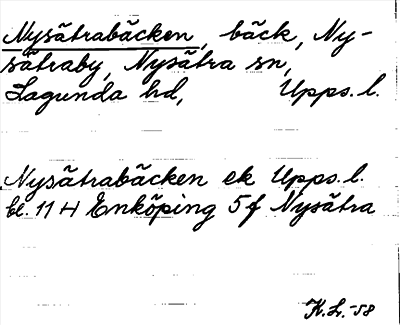 Nysätrabäcken, bäck, Ny-
sätraby, Nysätra sn,
Lagunda hd, Upps. l.
Nysätrabäcken ek Upps. l.
bl. 11 H Enköping 5 f Nysätra
K. Lr. -58